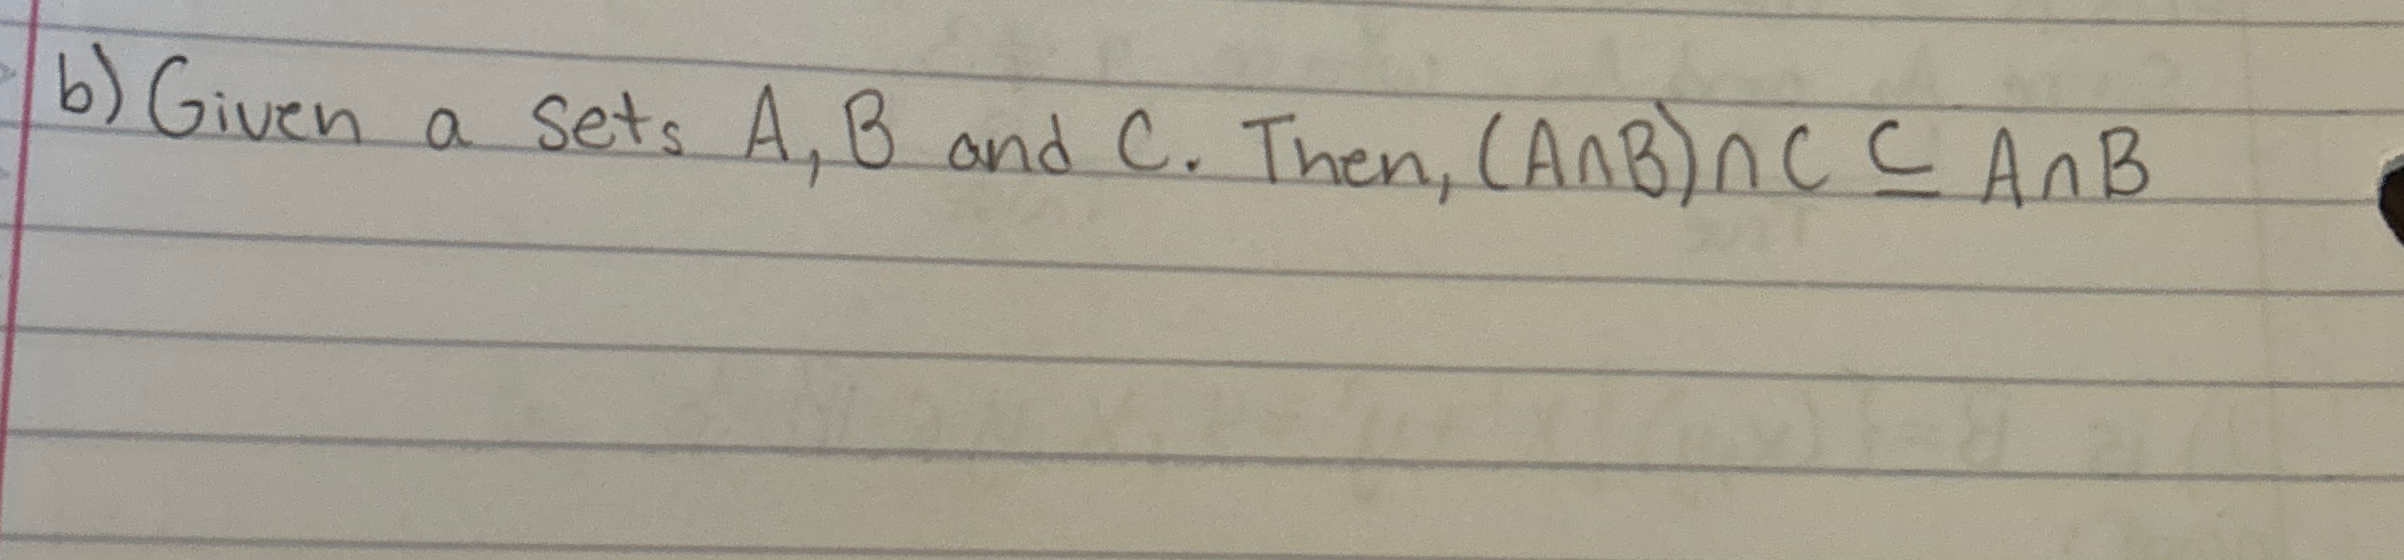 b) Given a sets A, B and C. Then, (A∩B)∩C ⊆ A∩B